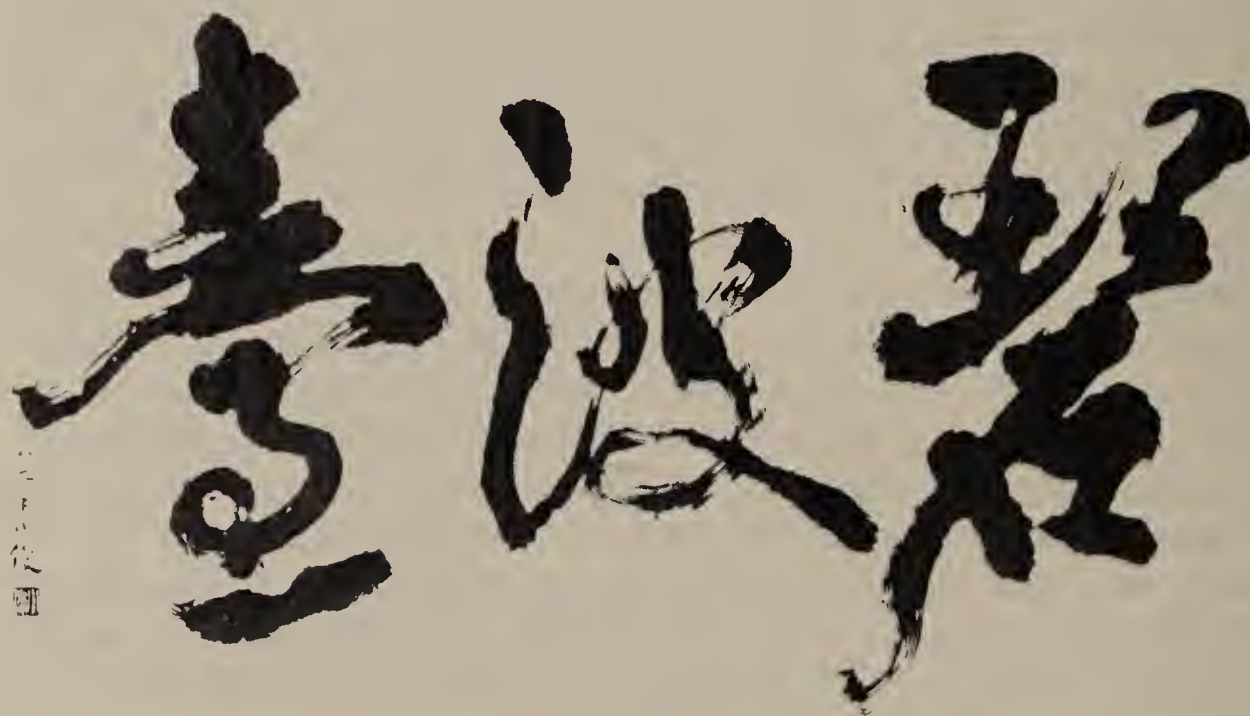 碧波臺